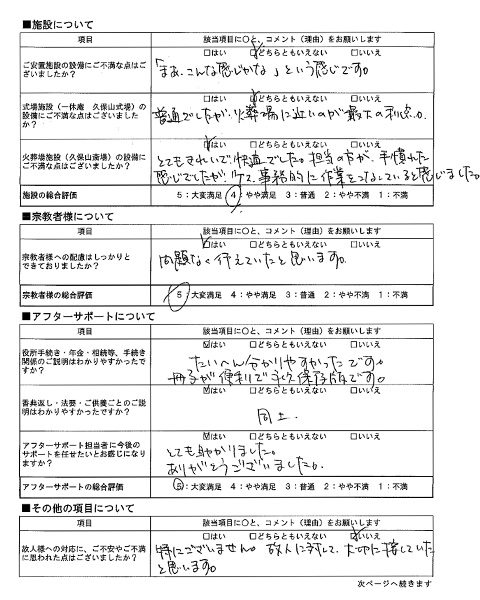 ■施設について
項目 該当項目に○と、コメント（理由）をお願いします
ご安置施設の設備にご不満な点はございましたか？
□はい ☑どちらともいえない □いいえ
「まあ、こんな感じかな」という感じです。
式場施設（一休庵 久保山式場）の設備にご不満な点はございましたか？
□はい ☑どちらともいえない □いいえ
普通でしたが、火葬場に近いのが最大の利点。
火葬場施設（久保山斎場）の設備にご不満な点はございましたか？
☑はい □どちらともいえない □いいえ
とてもきれいで快適でした。担当の方が、手慣れた
感じでしたが、事務的に作業をこなしていると感じました。
施設の総合評価 5：大変満足 4：やや満足 3：普通 2：やや不満 1：不満
■宗教者様について
項目 該当項目に○と、コメント（理由）をお願いします
宗教者様への配慮はしっかりとできておりましたか？
☑はい □どちらともいえない □いいえ
問題なく行えていたと思います。
宗教者様の総合評価 5：大変満足 4：やや満足 3：普通 2：やや不満 1：不満
■アフターサポートについて
項目 該当項目に○と、コメント（理由）をお願いします
役所手続き・年金・相続等、手続き関係のご説明はわかりやすかったですか？
☑はい □どちらともいえない □いいえ
たいへん分かりやすかったです。
冊子が便利で永久保存版です。
香典返し・法要・ご供養ごとのご説明はわかりやすかったですか？
☑はい □どちらともいえない □いいえ
同上.
アフターサポート担当者に今後のサポートを任せたいとお感じになりますか？
☑はい □どちらともいえない □いいえ
とても助かりました。
ありがとうございました。
アフターサポートの総合評価 5：大変満足 4：やや満足 3：普通 2：やや不満 1：不満
■その他の項目について
項目 該当項目に○と、コメント（理由）をお願いします
故人様への対応に、ご不安やご不満に思われた点はございましたか？
□はい □どちらともいえない ☑いいえ
特にございません。故人に対して、大切に接していた
と思います。
次ページへ続きます